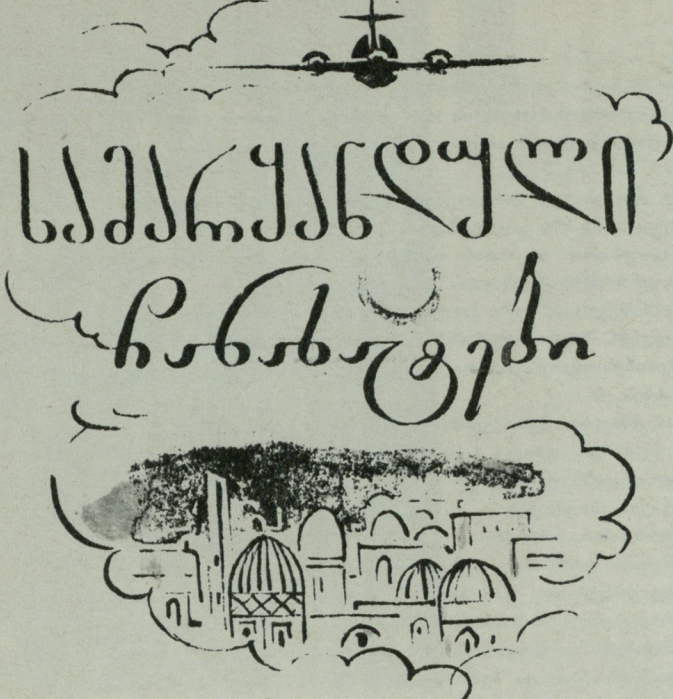 სამარყანდული
ჩანახატები